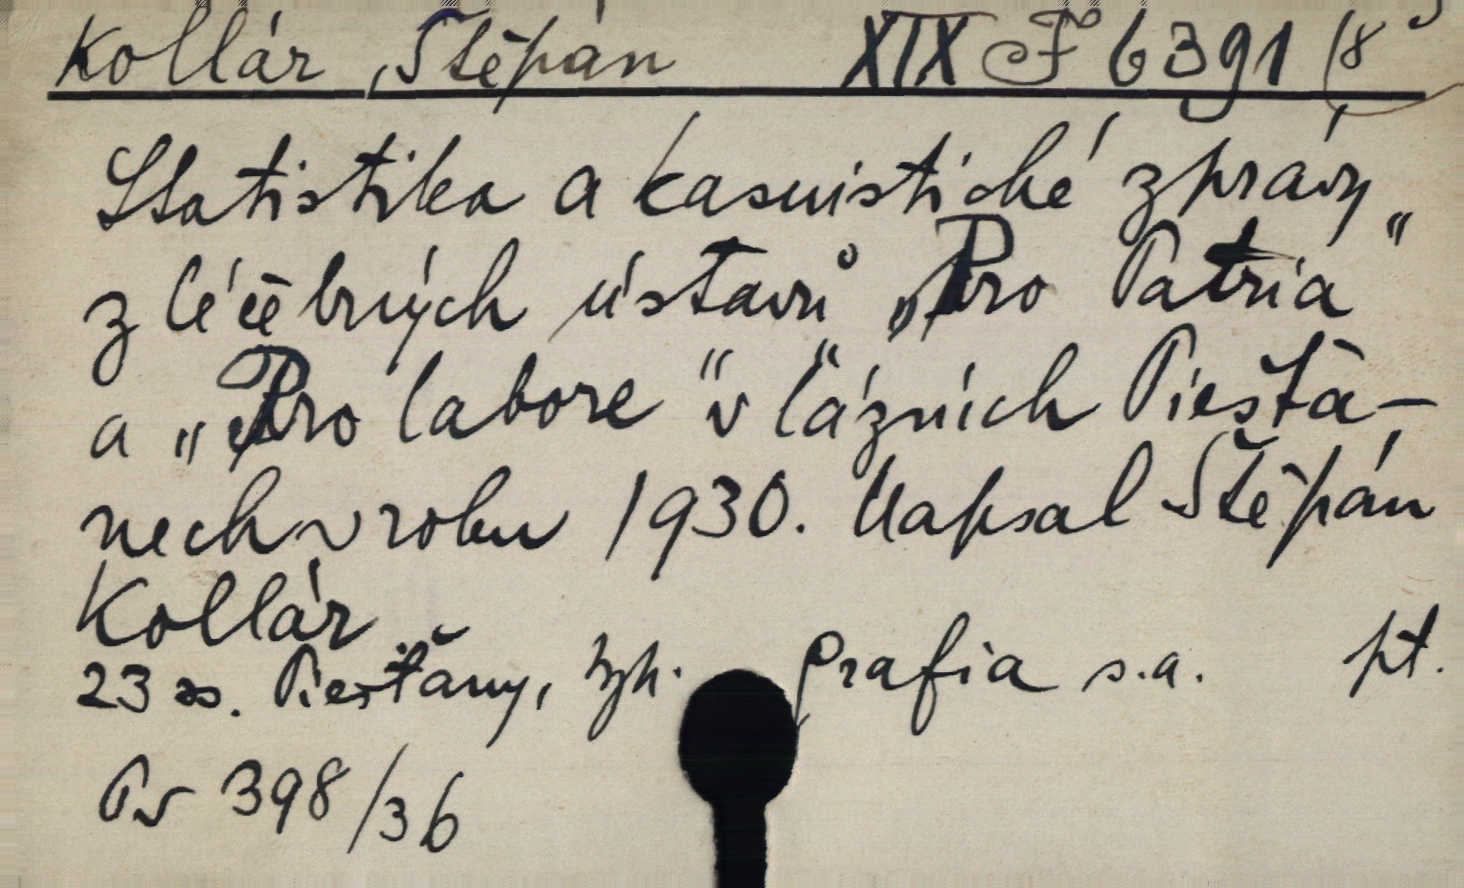 Kollár, Štěpán XIX F 6391 (8°
Statistika a kasuistické zprávy
z léčebných ústavů „Pro Patria“
a „Pro labore“ v lázních Piešťa-
nech v roku 1930. Napsal Štěpán
Kollár
23 ss. Piešťany, typ. Grafia s.a. pt.
Pv 398/36